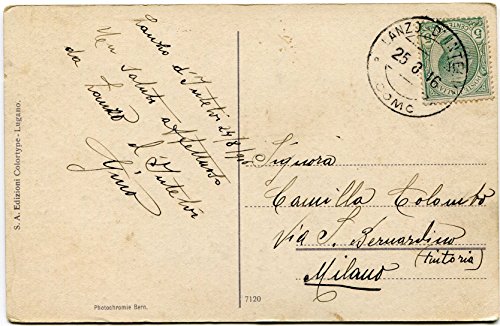 Lanzo d'Intelvi 24/8/916
Un saluto affettuoso
da Lanzo d'Intelvi
Gino
LANZO D'INTELVI
25.8.16
COMO
Signora
Camilla Colombo
Via S. Bernardino
(tintoria)
Milano
S. A. Edizioni Colortype - Lugano.
Photochromie Bern.
7120